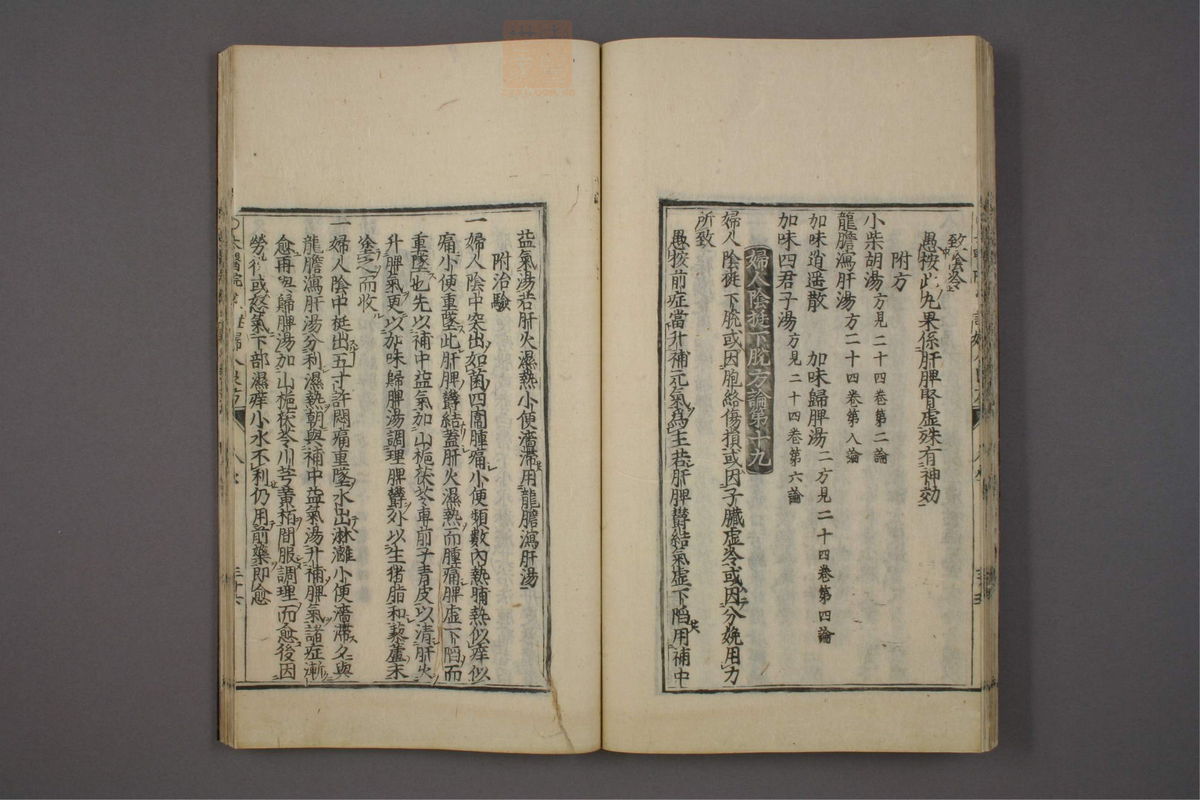 致陰冷
愚按此九果係肝脾腎虛殊有神効
附方
小柴胡湯方見二十四卷第二論
龍膽瀉肝湯方二十四卷第八論
加味逍遥散 加味歸脾湯二方見二十四卷第四論
加味四君子湯方見二十四卷第六論
婦人陰挺下脫方論第十九
婦人陰挺下脫或因胞絡傷損或因子臟虛冷或因分娩用力
所致
愚按前症當升補元氣爲主若肝脾欝結氣虛下陷用補中
益氣湯若肝火濕熱小便濇滯用龍膽瀉肝湯
附治驗
一婦人陰中突出如菌四圍腫痛小便頻數內熱晡熱似痒似
痛小便重墜此肝脾欝結蓋肝火濕熱而腫痛脾虛下陷而
重墜也先以補中益氣加山梔茯苓車前子青皮以清肝火
升脾氣更以加味歸脾湯調理脾欝外以生猪脂和藜蘆末
塗之而收
一婦人陰中挺出五寸許悶痛重墜水出淋灕小便濇滯夕與
龍膽瀉肝湯分利濕熱朝與補中益氣湯升補脾氣諸症漸
愈再與歸脾湯加山梔茯苓川芎黃栢間服調理而愈後因
勞役或怒氣下部濕痒小水不利仍用前藥即愈